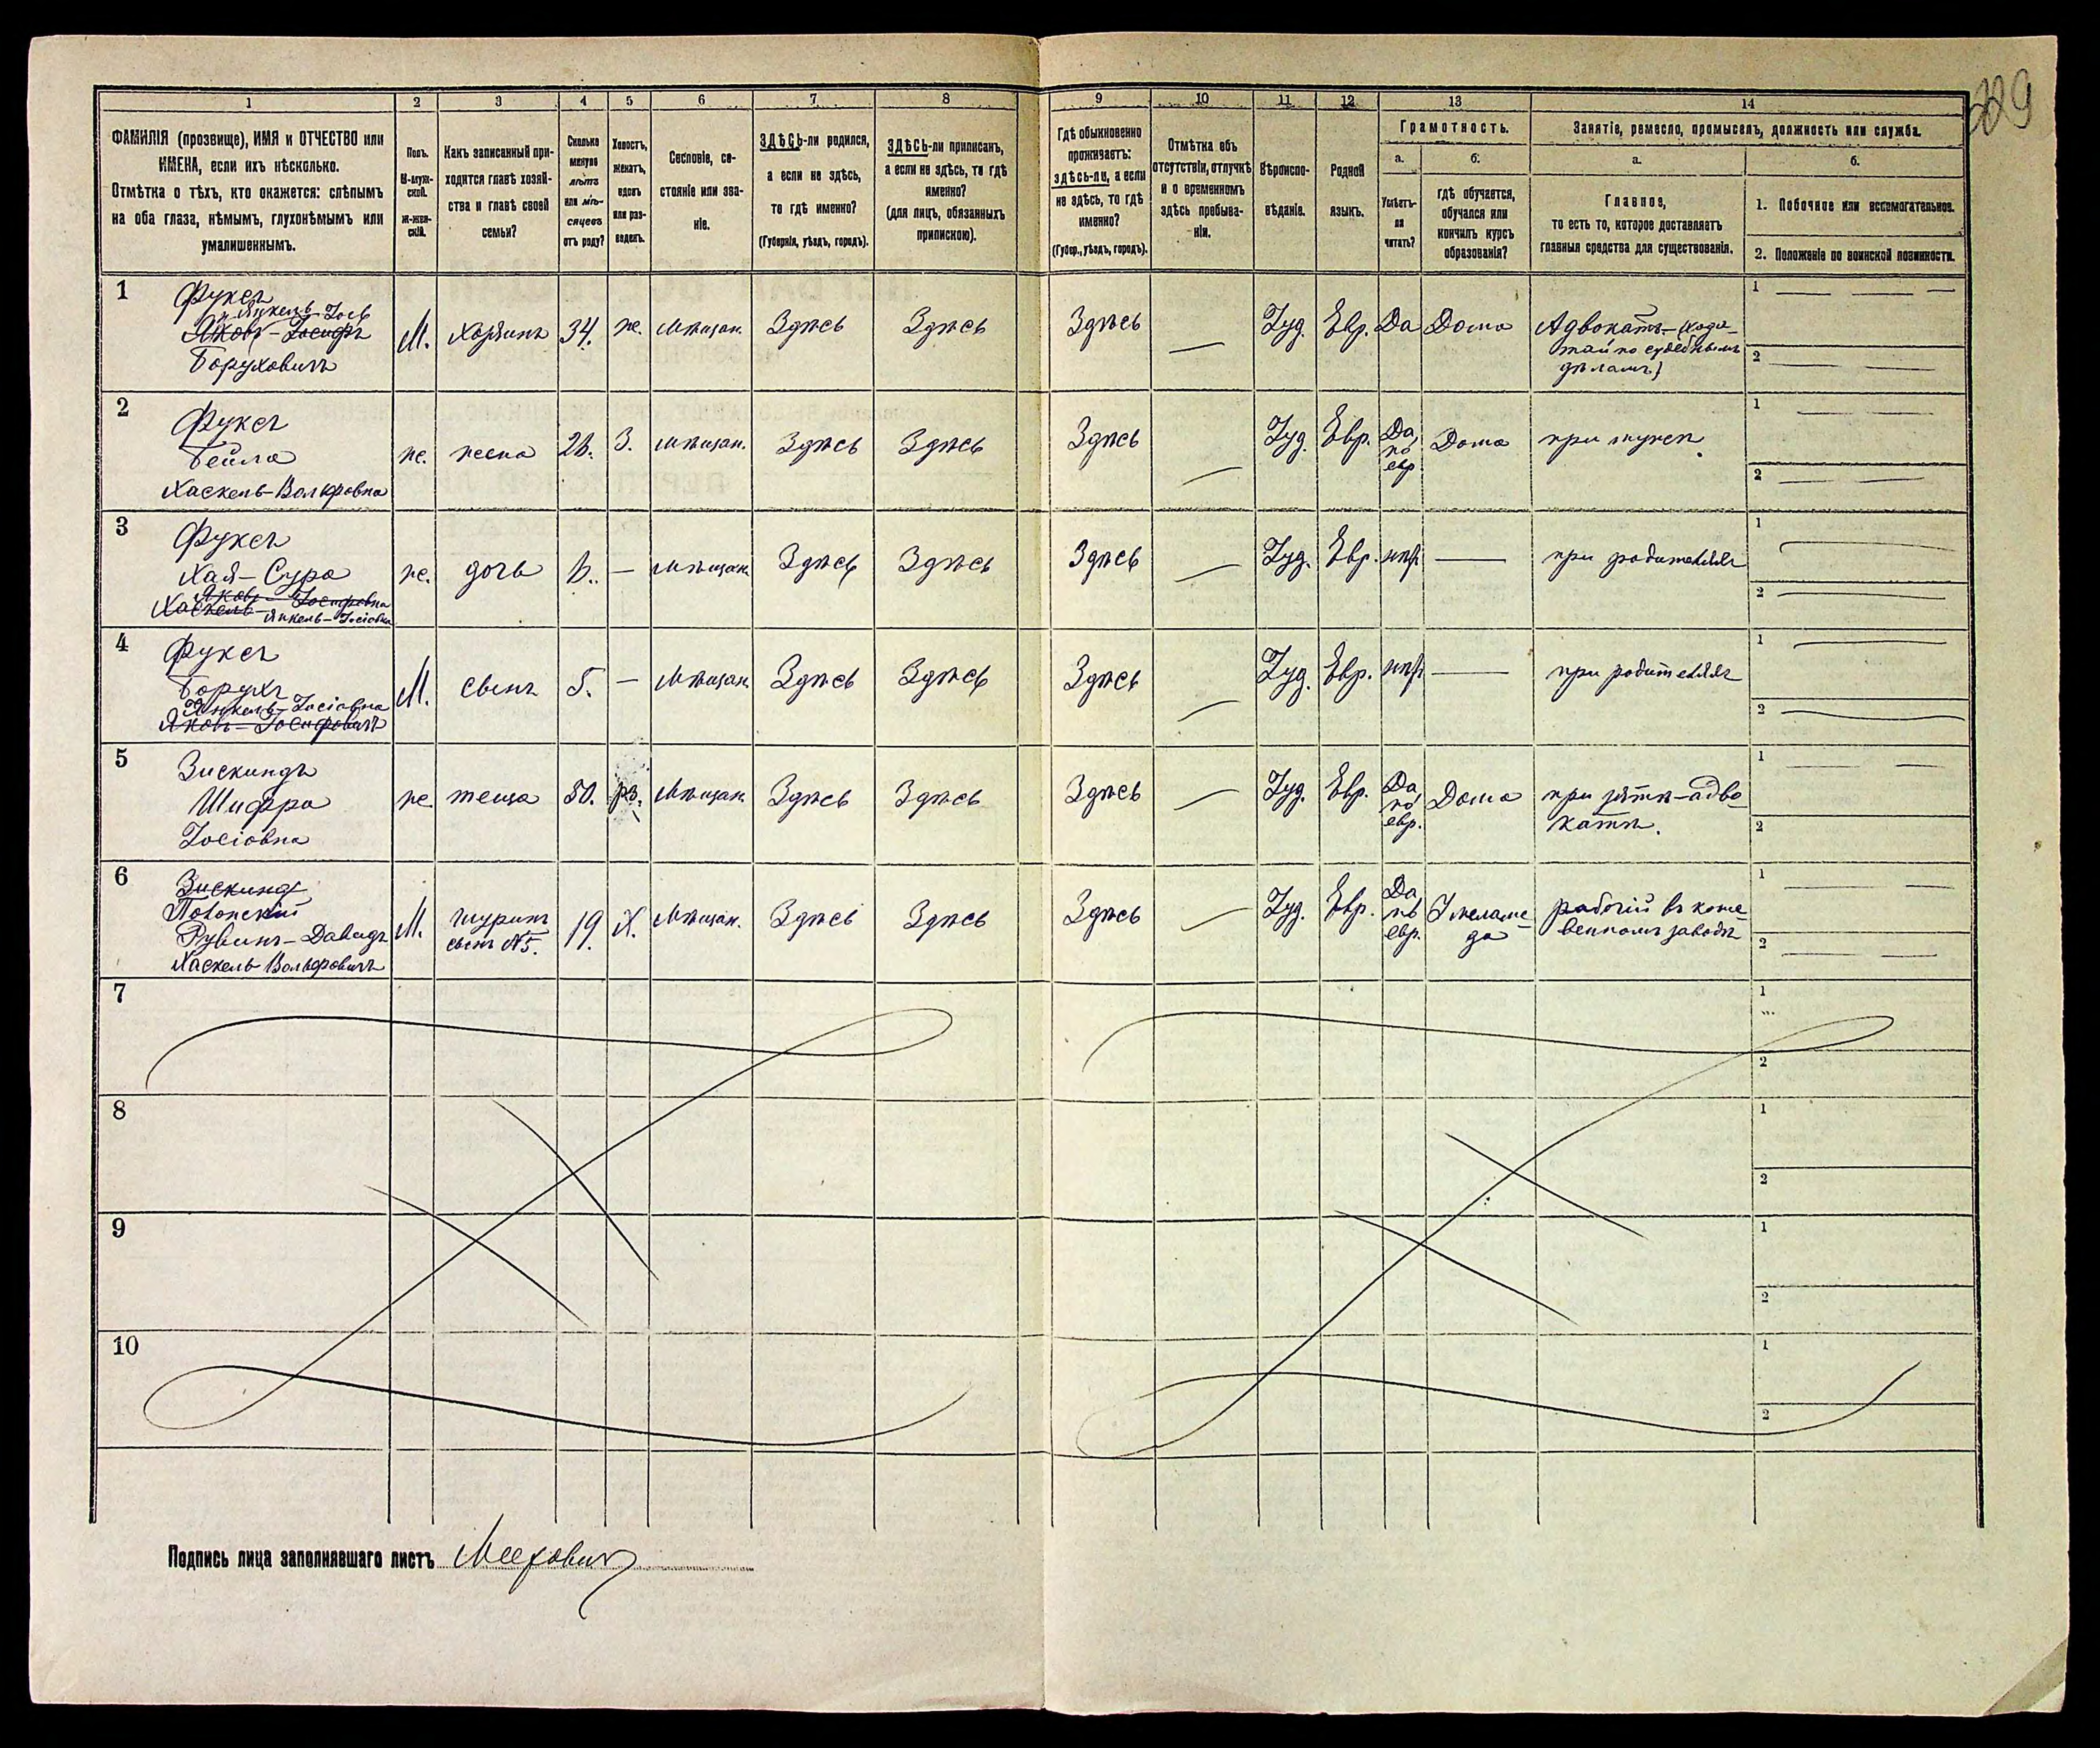 229
1 2 3 4 5 6 7 8 9 10 11 12 13 14
ФАМИЛІЯ (прозвище), ИМЯ и ОТЧЕСТВО или
ИМЕНА, если ихъ нѣсколько.
Отмѣтка о тѣхъ, кто окажется: слѣпымъ
на оба глаза, нѣмымъ, глухонѣмымъ или
умалишеннымъ.
Полъ.
М-муж-
ской.
Ж-жен-
скій.
Какъ записанный при-
ходится главѣ хозяй-
ства и главѣ своей
семьи?
Сколько
минуло
лѣтъ
или мѣ-
сяцевъ
отъ роду?
Холостъ,
женатъ,
вдовъ
или раз-
веденъ.
Сословіе, со-
стояніе или зва-
ніе.
ЗДѢСЬ-ли родился,
а если не здѣсь,
то гдѣ именно?
(Губернія, уѣздъ, городъ).
ЗДѢСЬ-ли приписанъ,
а если не здѣсь, то гдѣ
именно?
(для лицъ, обязанныхъ
припискою).
Гдѣ обыкновенно
проживаетъ:
здѣсь-ли, а если
не здѣсь, то гдѣ
именно?
(Губер., уѣздъ, городъ).
Отмѣтка объ
отсутствіи, отлучкѣ
и о временномъ
здѣсь пребыва-
ніи.
Вѣроиспо-
вѣданіе.
Родной
языкъ.
Грамотность.
а.
Умѣетъ-
ли
читать?
б.
гдѣ обучается,
обучался или
кончилъ курсъ
образованія?
Занятіе, ремесло, промыселъ, должность или служба.
а.
Главное,
то есть то, которое доставляетъ
главныя средства для существованія.
б.
1. Побочное или вспомогательное.
2. Положеніе по воинской повинности.
1
Фуксъ
Янкель-Іось
Яковъ-Іосифъ
Боруховичъ
М. хозяинъ 34. ж. мѣщан. Здѣсь Здѣсь Здѣсь — Іуд. Евр. Да Дома
Адвокатъ-(хода-
тай по судебнымъ
дѣламъ)
1 — —
2 — —
2
Фуксъ
Бейла
Хаскель-Вольфовна
ж. жена 26. З. мѣщан. Здѣсь Здѣсь Здѣсь — Іуд. Евр.
Да,
по
евр.
Дома при мужѣ.
1 — —
2 — —
3
Фуксъ
Хая-Сура
Яковъ-Іосифовна
Хаскель-
Янкель-Іосіовна
ж. дочь 6. — мѣщан. Здѣсь Здѣсь Здѣсь — Іуд. Евр. нѣтъ — при родителяхъ
1 —
2 —
4
Фуксъ
Борухъ
Янкель-Іосіовна
Яковъ-Іосифовичъ
М. сынъ 5. — мѣщан. Здѣсь Здѣсь Здѣсь — Іуд. Евр. нѣтъ — при родителяхъ
1 —
2 —
5
Зискиндъ
Шифра
Іосіовна
ж. теща 50. рз. мѣщан. Здѣсь Здѣсь Здѣсь — Іуд. Евр.
Да,
по
евр.
Дома
при зятѣ-адво-
катѣ.
1 — —
2
6
Зискинд
Полонскій
Рувинъ-Давидъ
Хаскель Вольфовичъ
М.
шуринъ
сынъ №5.
19. Х. мѣщан. Здѣсь Здѣсь Здѣсь — Іуд. Евр.
Да,
по
евр.
У меламе-
да
рабочій въ коже-
венномъ заводѣ
1 — —
2 — —
7
1
2
8
1
2
9
1
2
10
1
2
Подпись лица заполнявшаго листъ